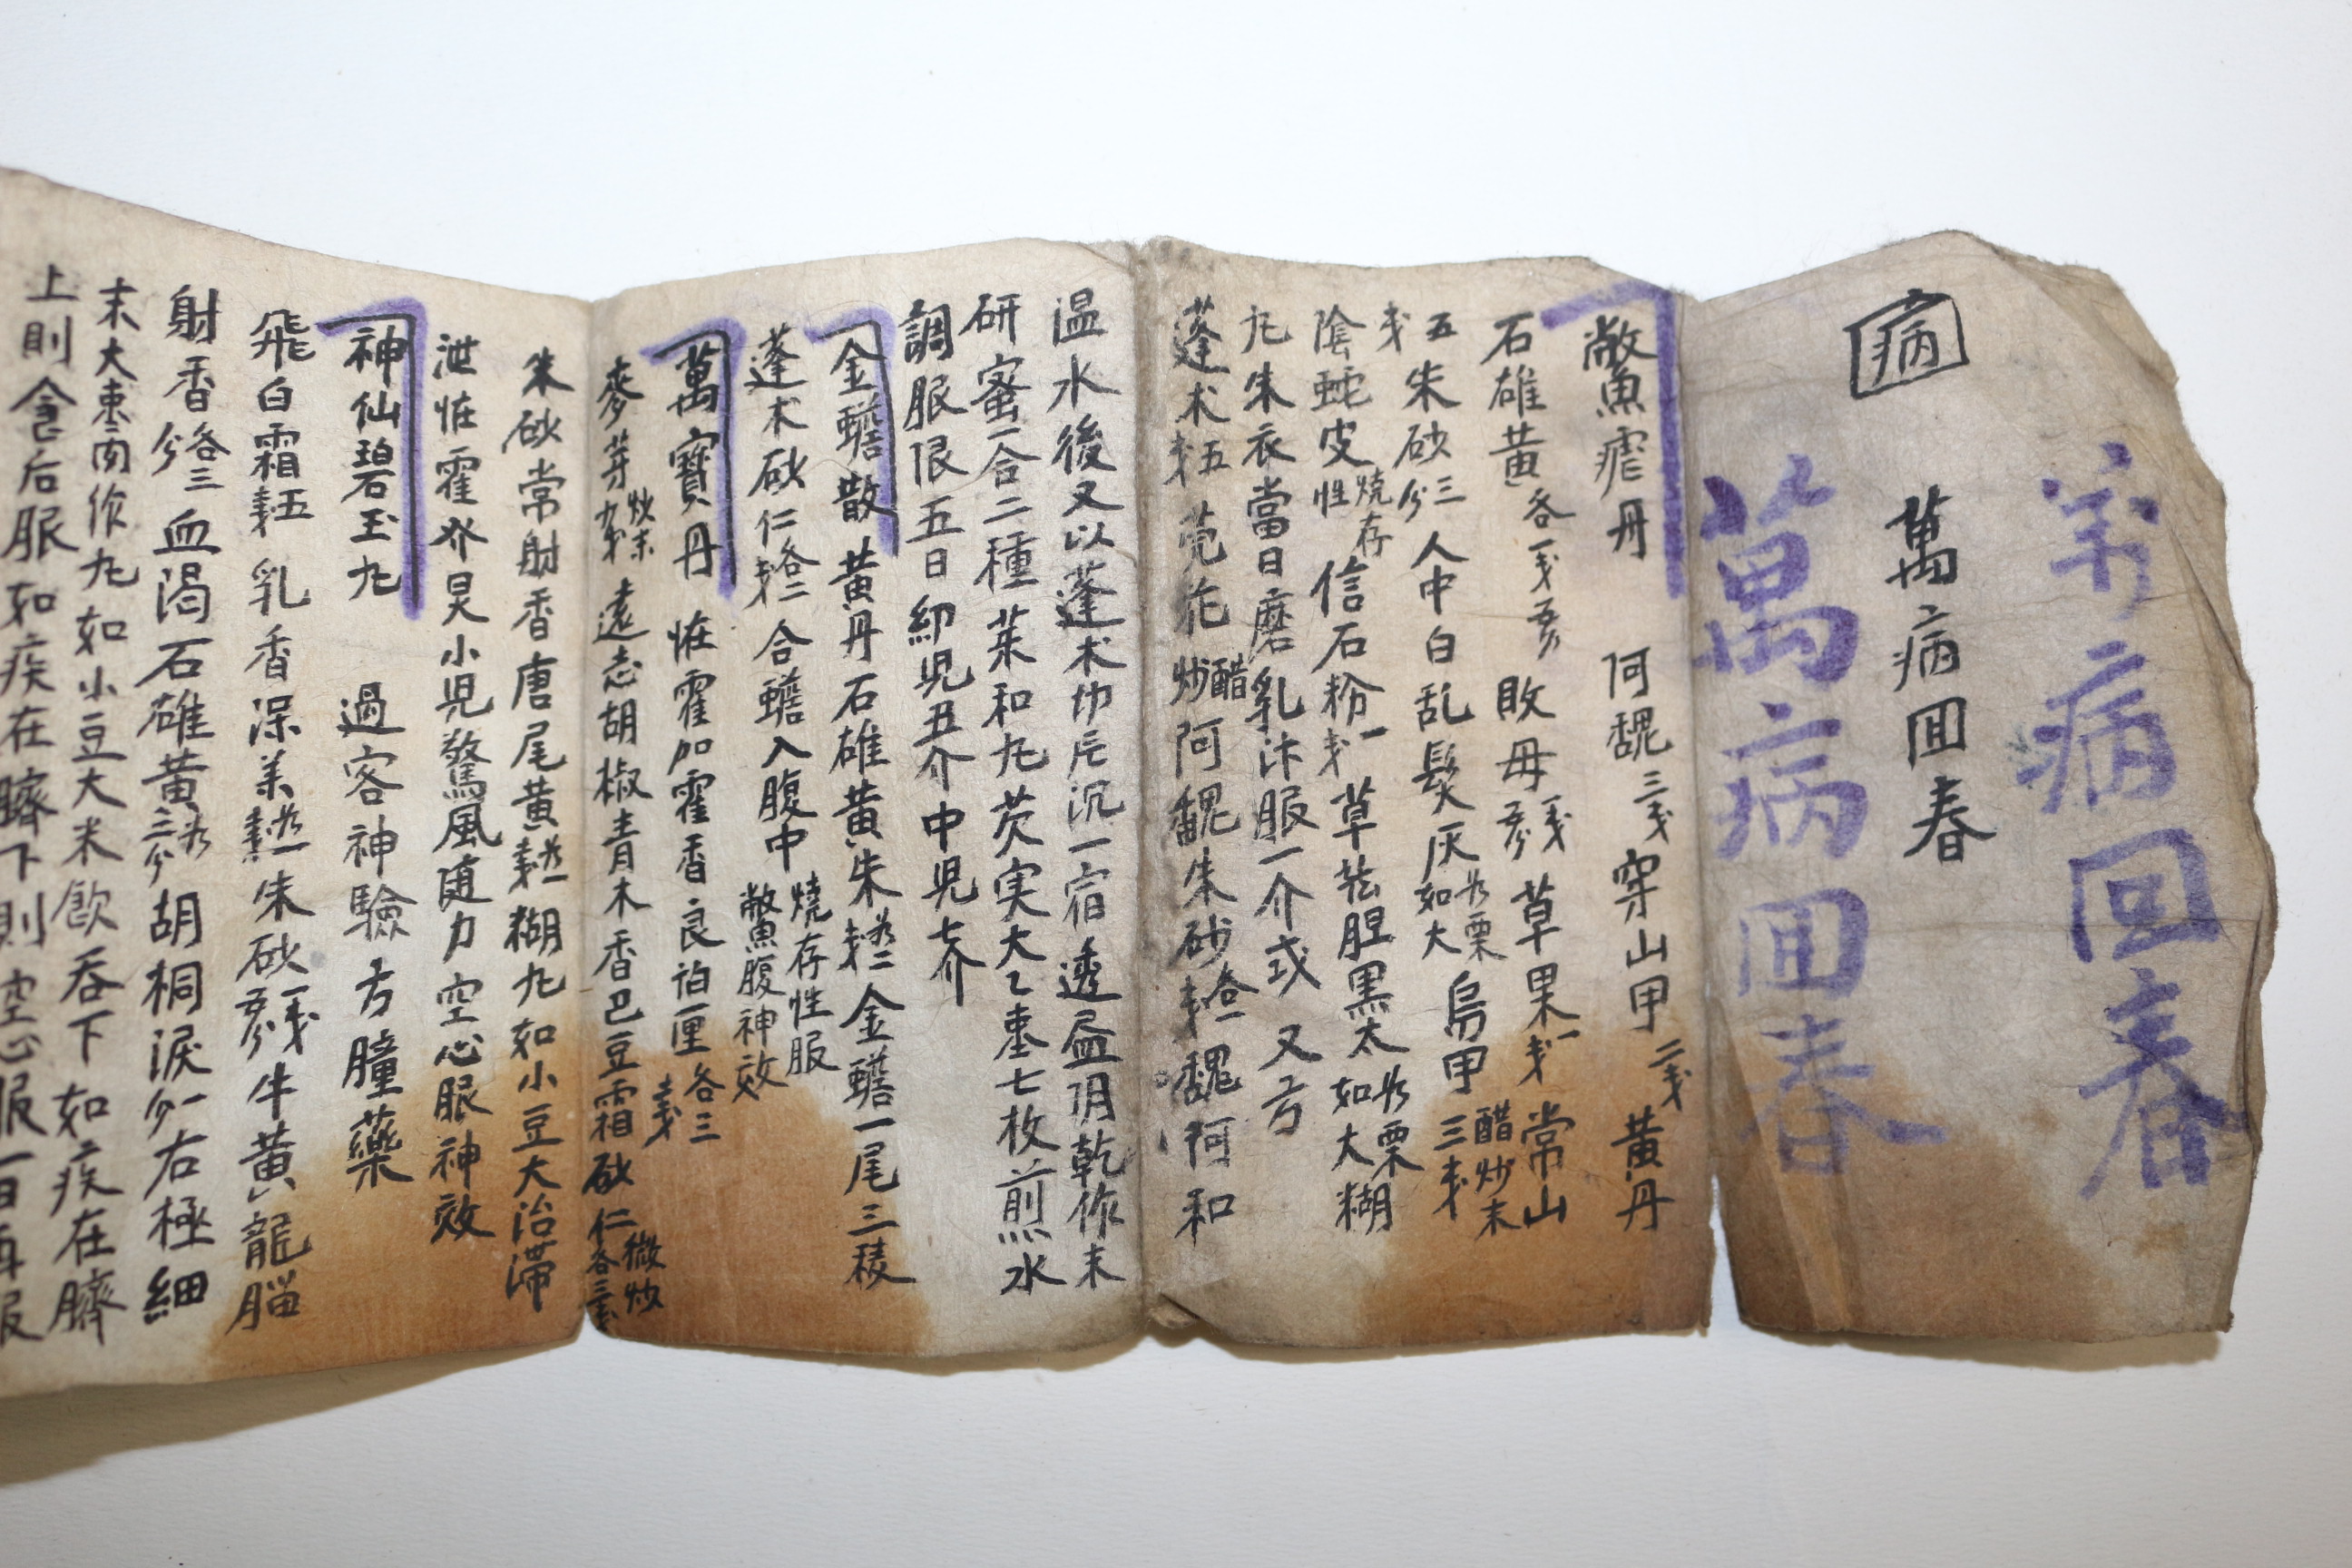 病回春
病
萬病回春
萬病回春
鱉魚瘧丹 阿魏三戔 穿山甲二戔 黃丹
石雄黃各一戔五分 敗母一戔五分 草果一戔 常山醋炒末
五朱砂三分 人中白乱髮灰如大栗 烏甲三戔
戔陰蛇皮燒存性 信石粉一戔 草
黑太如大栗糊
九朱衣當日磨乳汁服一介或 又方
蓬朮五戔 芫花醋炒 阿魏朱砂各一戔 魏何和
温水後又以蓬朮 沉一宿透 阴乾作末
研蜜合二種茱和九芡実大乙棗七枚煎水
調服限五日 兒五介中兒七介
金蟾散 黃丹石雄黃朱 金蟾一尾三稜
蓬朮砂仁各二戔 合蟾入腹中燒存性服 鱉魚腹神效
萬寶丹 怪霍加霍香良 厘各三戔
麥芽炒末 遠志胡椒青木香巴豆霜砂仁微炒各三戔
朱砂常射香唐尾黃 糊九如小豆大治滯
泄怪霍 小児驚風随力空心服神效
神仙碧玉九 過客神驗方腫藥
飛白霜五戔 乳香深 朱砂一戔五分 牛黃龍腦
射香各三分 血渴石雄黃 三分 胡桐淚一分右極細
末大棗肉作九如小豆大米飮吞下如疾在臍
上則食后服如疾在臍下則空心服一日再服